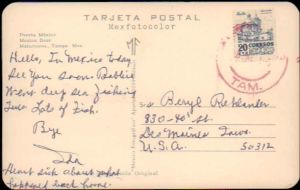 TARJETA POSTAL
Mexfotocolor
Puerta México
Mexico Door
Matamoros, Tamps. Mex.
Hello, In Mexico today
See you soon. Bobbie
Went deep sea fishing
Lots of fish.
Bye
Ida
Heart sick about what
happened back home.
20 CORREOS
TAM.
Beryl
830-40 St
Des Moines Iowa.
U.S.A. 50312
Original